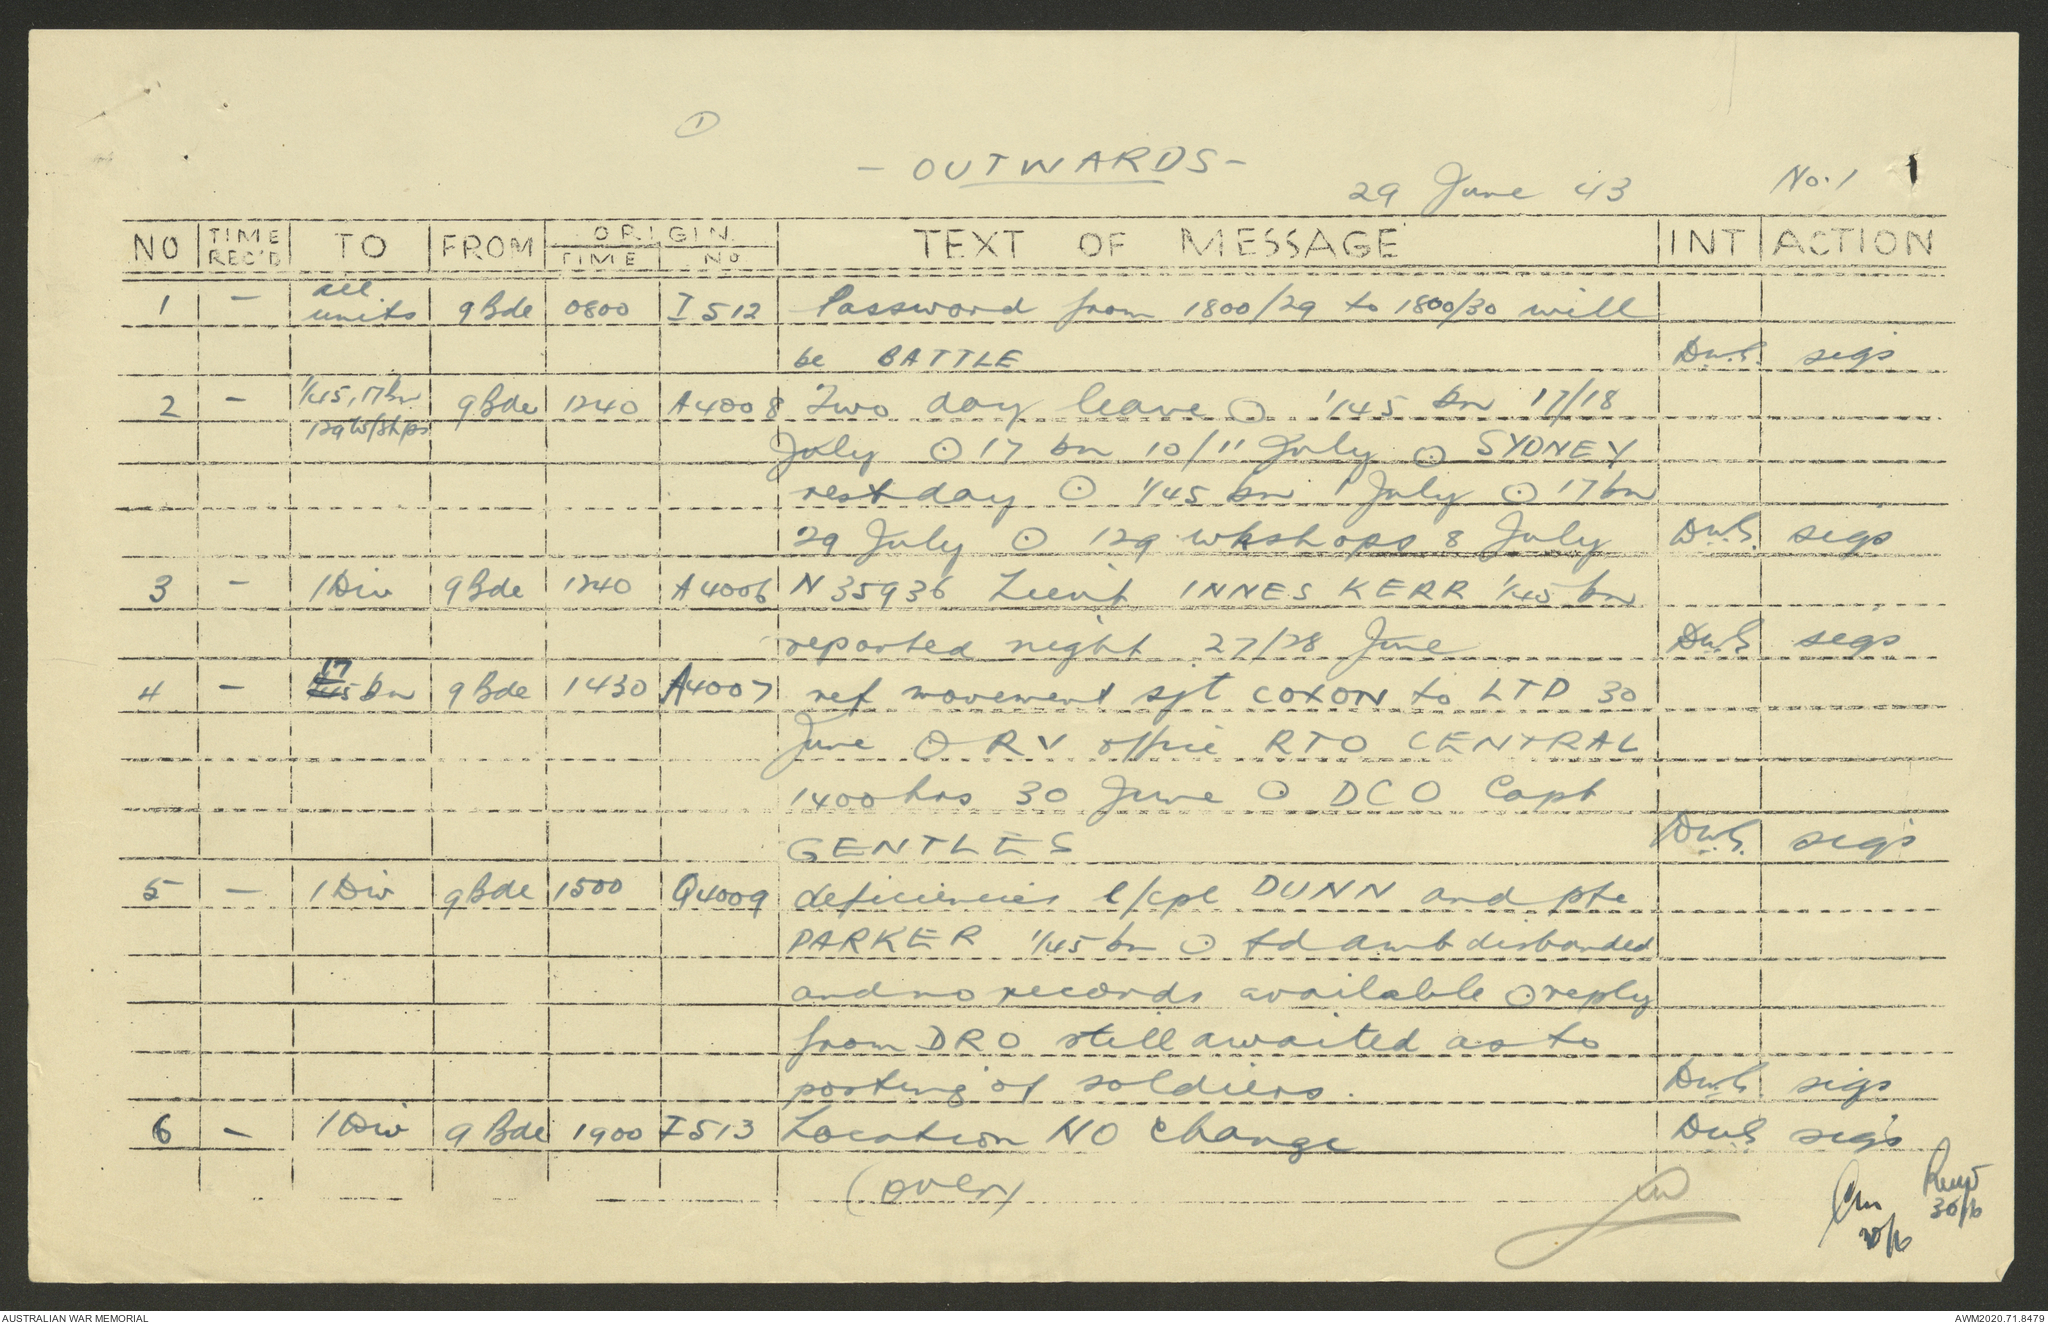 1
- OUTWARDS -
29 June 43 No. 1
NO TIME REC'D TO FROM ORIGIN TIME NO TEXT OF MESSAGE INT ACTION
1 - all units 9 Bde 0800 I 512 Password from 1800/29 to 1800/30 will
be BATTLE D.W.S. sigs
2 - 1/45, 17 bn 9 Bde 1240 A4008 Two day leave ⊙ 1/45 bn 17/18
129 W/shps July ⊙ 17 bn 10/11 July ⊙ SYDNEY
rest day ⊙ 1/45 bn 1 July ⊙ 17 bn
29 July ⊙ 129 wkshops 8 July D.W.S. sigs
3 - 1 Div 9 Bde 1240 A4006 N 35936 Lieut INNES KERR 1/45 bn
reported night 27/28 June D.W.S. sigs
4 - 17 1/45 bn 9 Bde 1430 A4007 ref movement sjt COXON to LTD 30
June ⊙ RV office RTO CENTRAL
1400 hrs 30 June ⊙ DCO Capt
GENTLES D.W.S. sigs
5 - 1 Div 9 Bde 1500 Q4009 deficiencies l/cpl DUNN and pte
PARKER 1/45 bn ⊙ fd amb disbanded
and no records available ⊙ reply
from DRO still awaited as to
posting of soldiers. D.W.S. sigs
6 - 1 Div 9 Bde 1900 I 513 Location NO change D.W.S. sigs
(over)
30/6
30/6
AUSTRALIAN WAR MEMORIAL AWM2020.71.8479